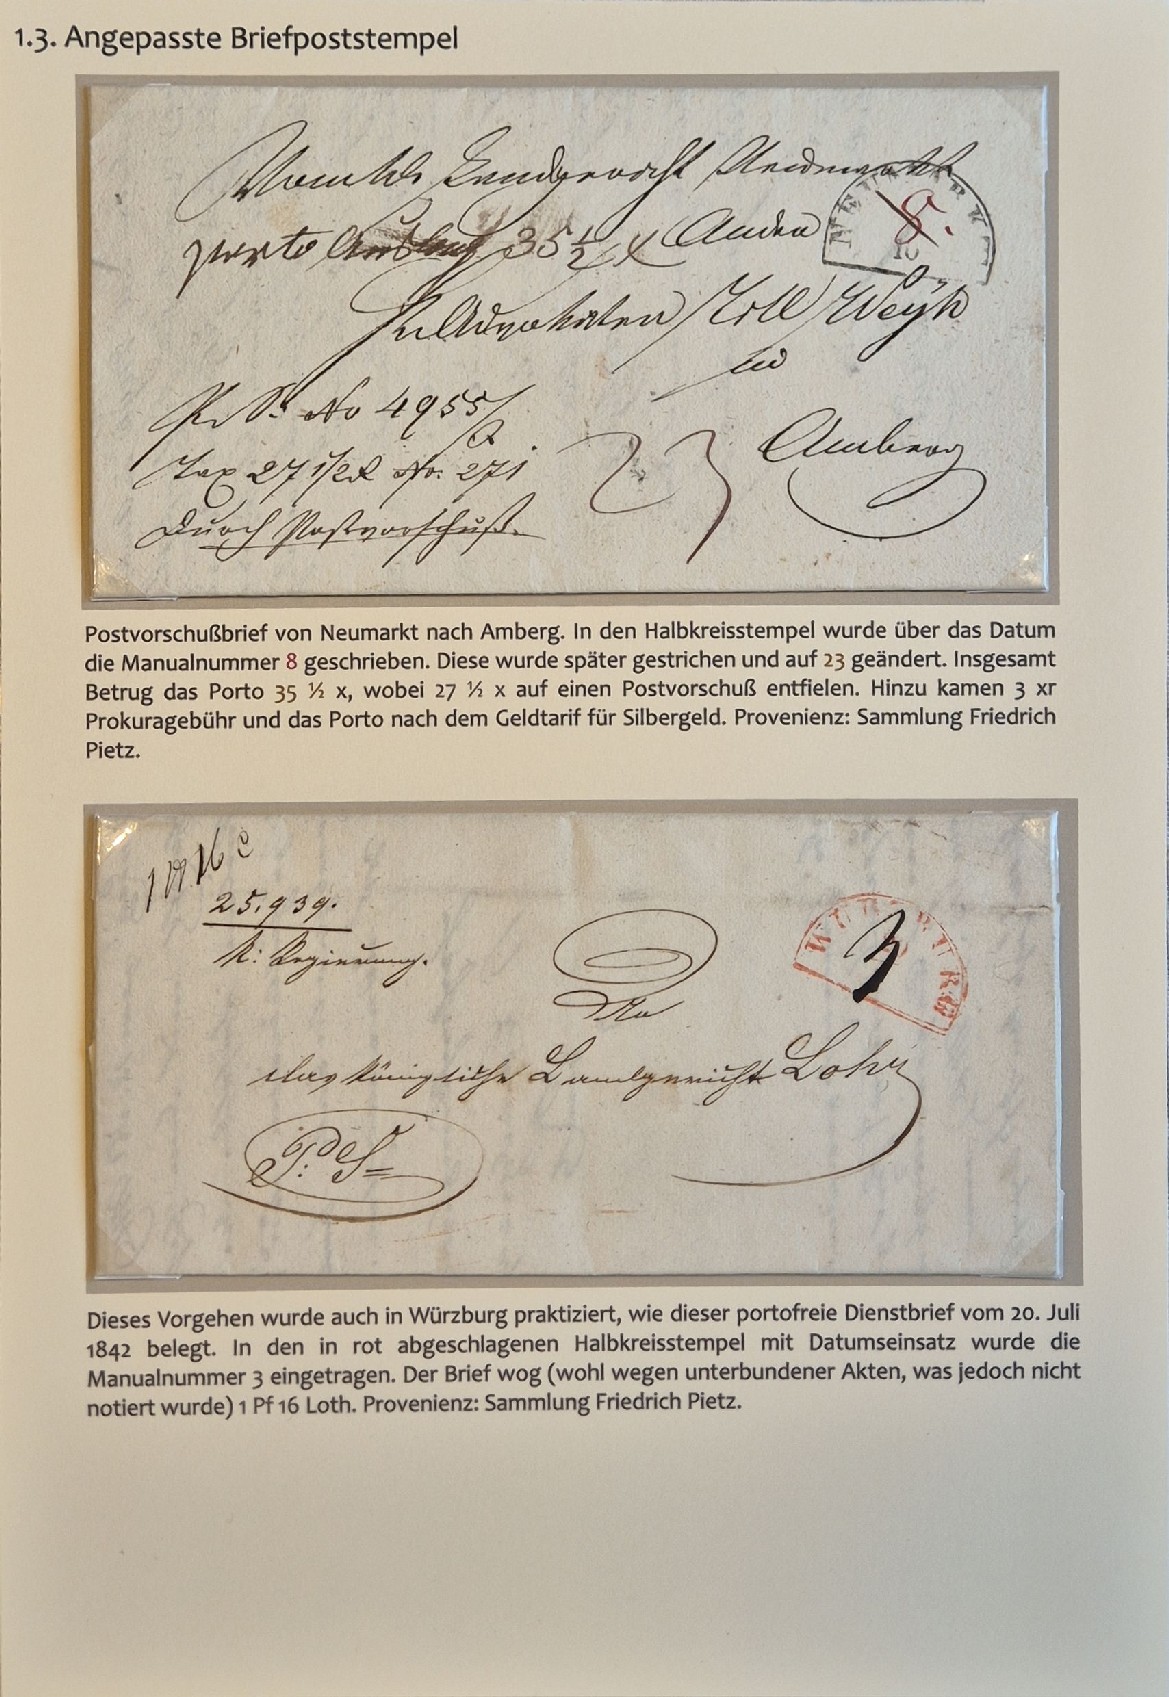 1.3. Angepasste Briefpoststempel
Landgericht Neumarkt
porto Auslag 35 1/2 x An den
8.
Advokaten Weyh
in
No 4955/
Tax 27 1/2 x No: 271
Durch Postvorschuß.
23
Amberg
Postvorschußbrief von Neumarkt nach Amberg. In den Halbkreisstempel wurde über das Datum
die Manualnummer 8 geschrieben. Diese wurde später gestrichen und auf 23 geändert. Insgesamt
Betrug das Porto 35 ½ x, wobei 27 ½ x auf einen Postvorschuß entfielen. Hinzu kamen 3 xr
Prokuragebühr und das Porto nach dem Geldtarif für Silbergeld. Provenienz: Sammlung Friedrich
Pietz.
25,939.
K: Regierung.
WÜRZBURG
3
An
das königliche Landgericht Lohr
P: S=
Dieses Vorgehen wurde auch in Würzburg praktiziert, wie dieser portofreie Dienstbrief vom 20. Juli
1842 belegt. In den in rot abgeschlagenen Halbkreisstempel mit Datumseinsatz wurde die
Manualnummer 3 eingetragen. Der Brief wog (wohl wegen unterbundener Akten, was jedoch nicht
notiert wurde) 1 Pf 16 Loth. Provenienz: Sammlung Friedrich Pietz.